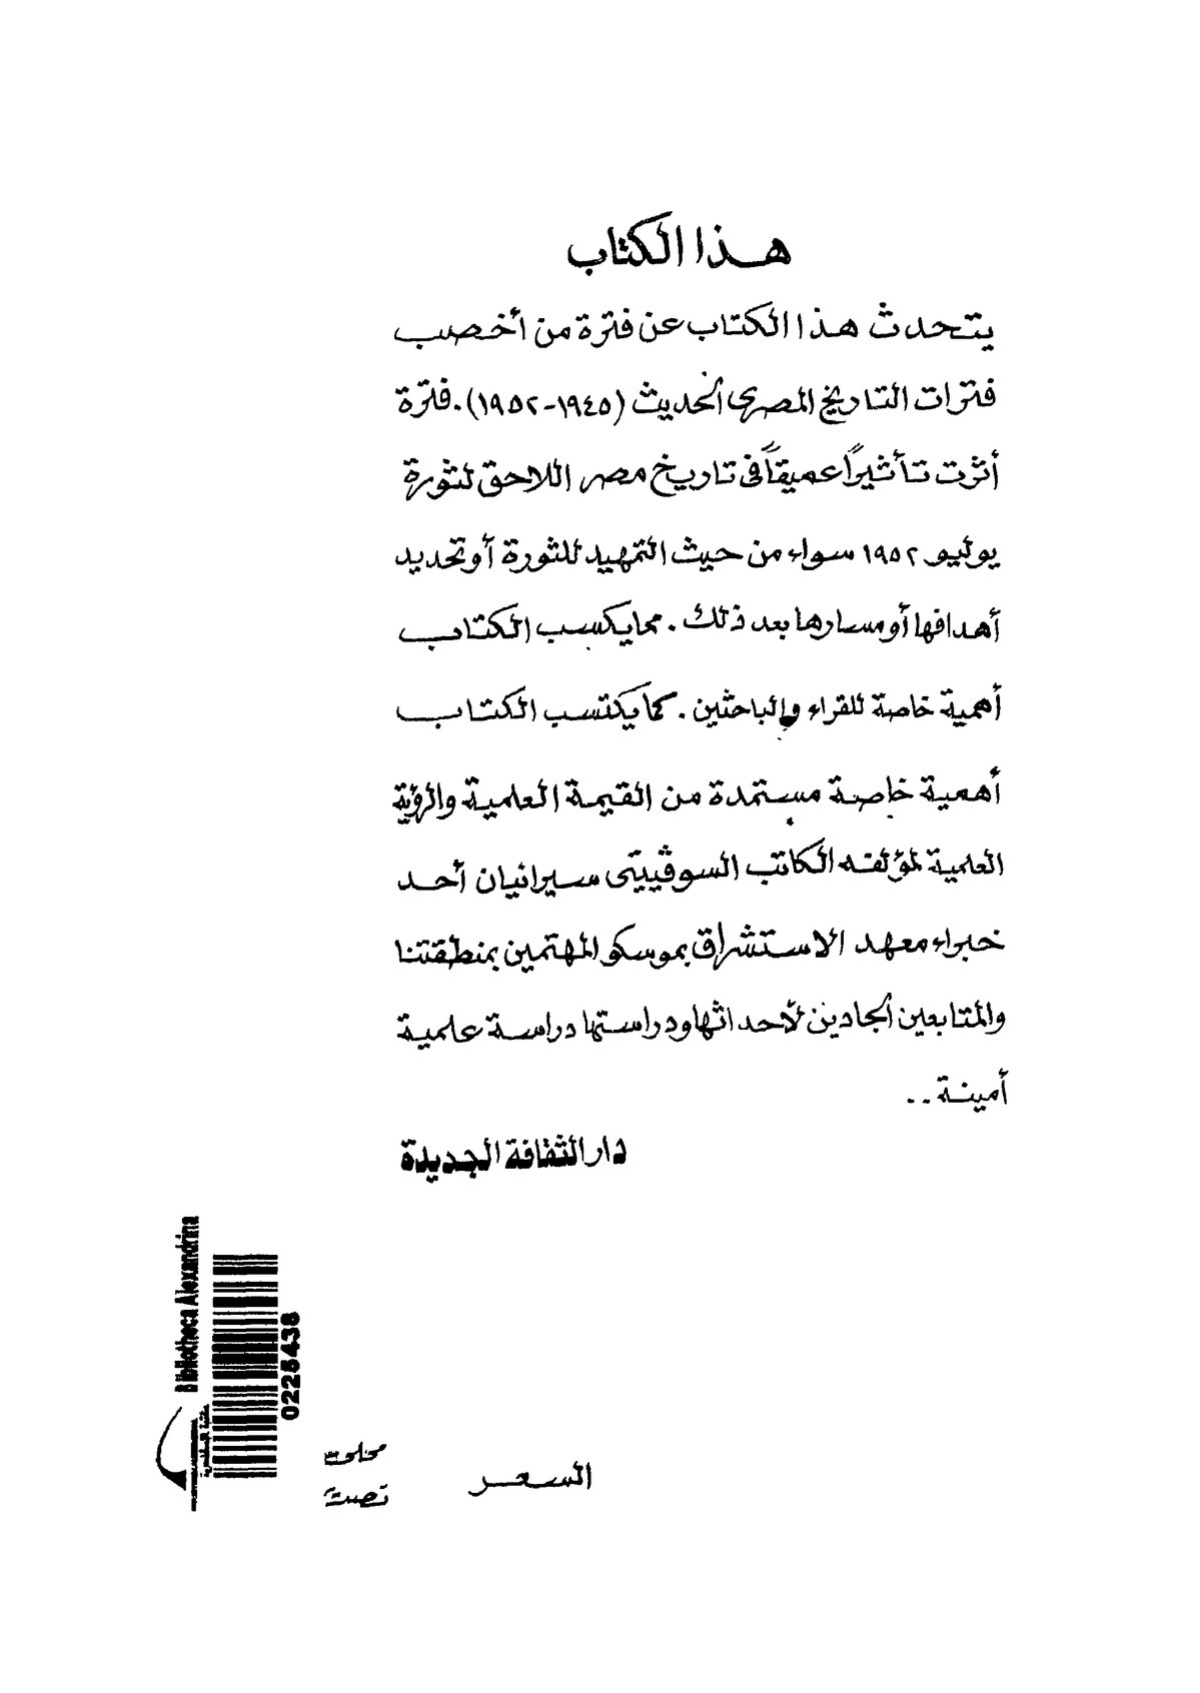 هذا الكتاب
يتحدث هذا الكتاب عن فترة من أخصب
فترات التاريخ المصرى الحديث (١٩٤٥-١٩٥٢). فترة
أثرت تأثيرًا عميقاً فى تاريخ مصر اللاحق لثورة
يوليو ١٩٥٢ سواء من حيث التمهيد للثورة أو تحديد
أهدافها أو مسارها بعد ذلك. مما يكسب الكتاب
أهمية خاصة للقراء والباحثين. كما يكتسب الكتاب
أهمية خاصة مستمدة من القيمة العلمية والرؤية
العلمية لمؤلفه الكاتب السوڤييتى سيرانيان أحد
خبراء معهد الاستشراق بموسكو المهتمين بمنطقتنا
والمتابعين الجادين لأحداثها ودراستها دراسة علمية
أمينة..
دار الثقافة الجديدة
Bibliotheca Alexandrina
مكتبة الإسكندرية
0225438
السعر